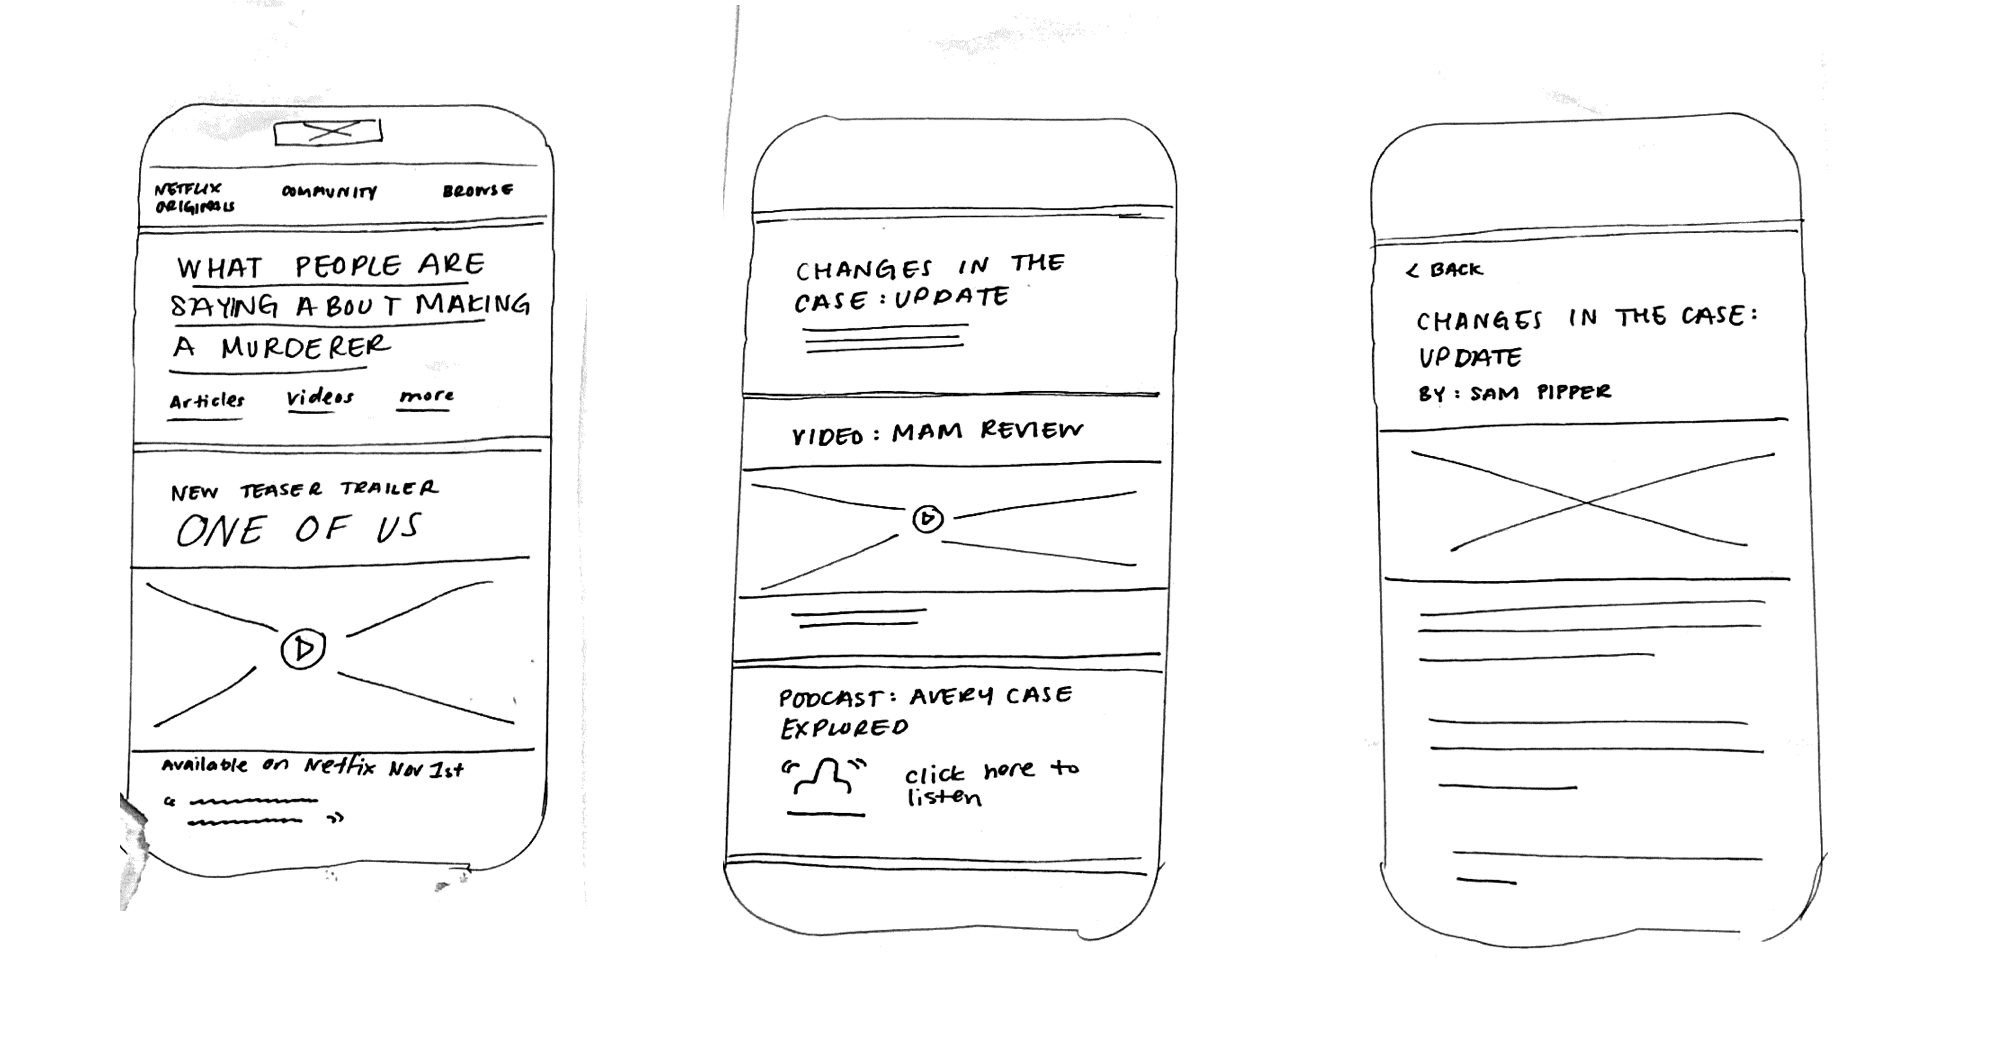 NETFLIX
ORIGINALS
COMMUNITY
BROWSE
WHAT PEOPLE ARE
SAYING ABOUT MAKING
A MURDERER
Articles videos more
NEW TEASER TRAILER
ONE OF US
Available on Netfix Nov 1st
CHANGES IN THE
CASE: UPDATE
VIDEO: MAM REVIEW
PODCAST: AVERY CASE
EXPLORED
click here to
listen
< BACK
CHANGES IN THE CASE:
UPDATE
BY: SAM PIPPER